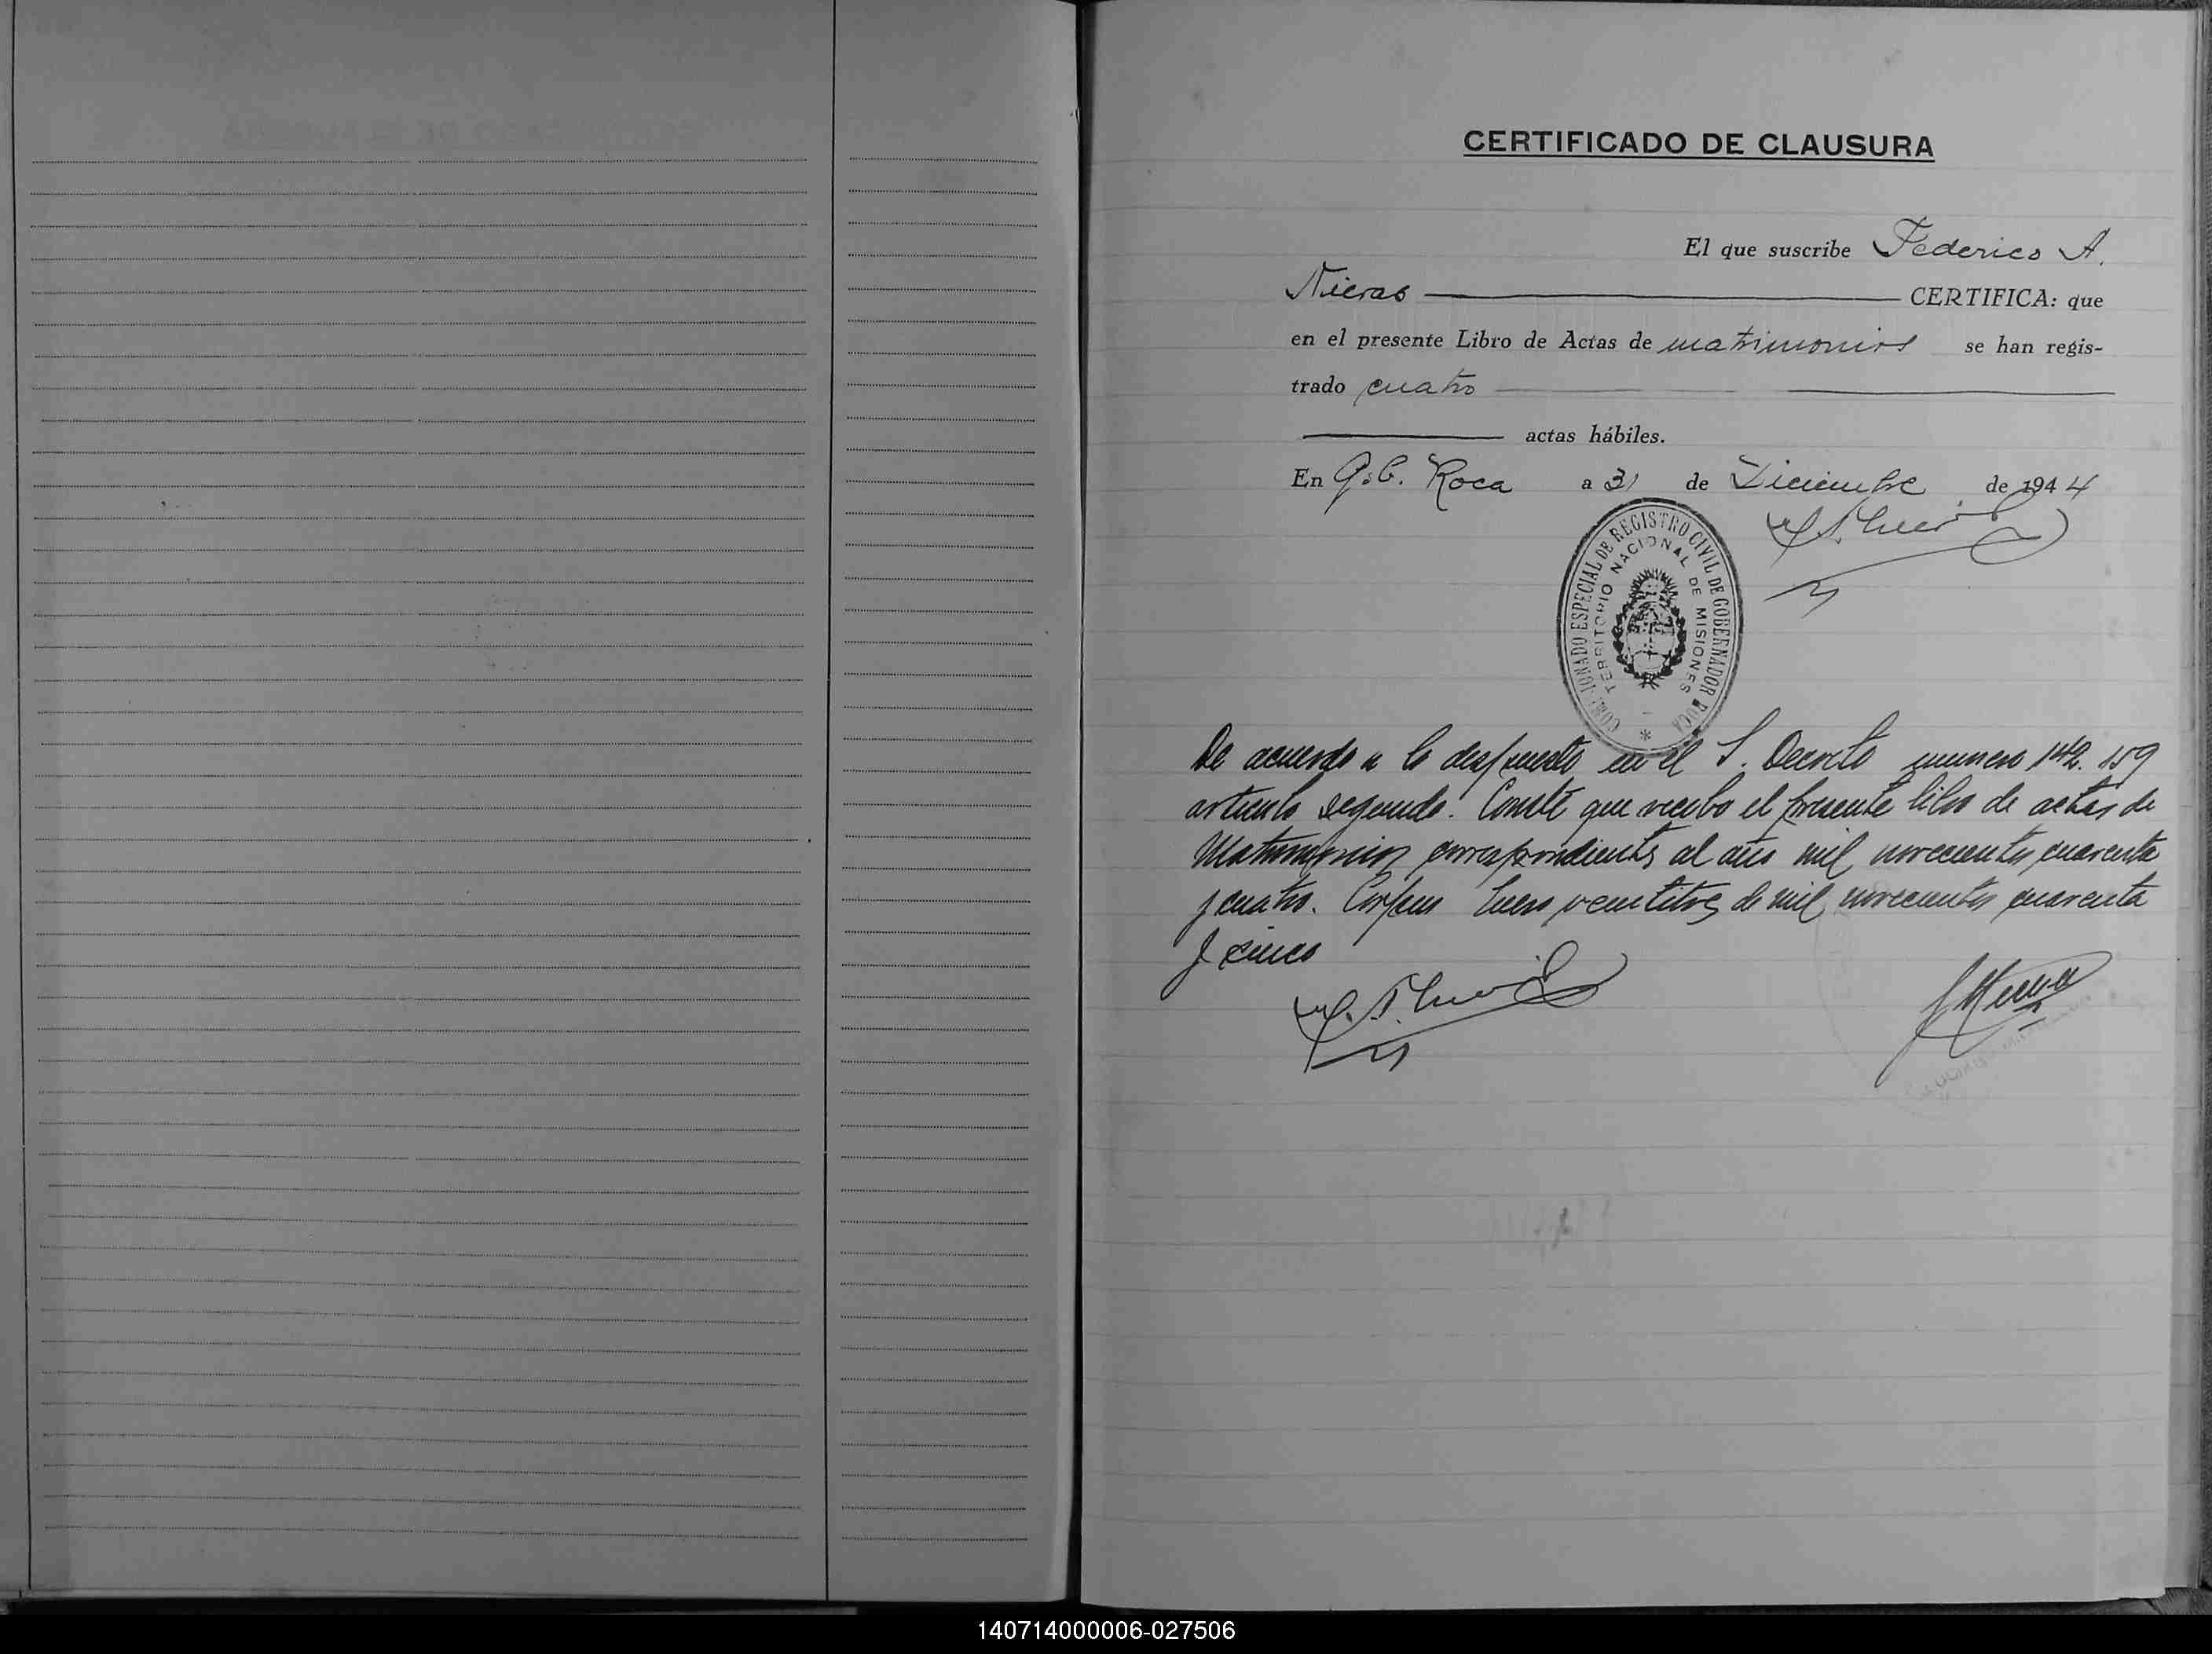 CERTIFICADO DE CLAUSURA
El que suscribe Federico A.
Nieras CERTIFICA: que
en el presente Libro de Actas de matrimonios se han regis-
trado cuatro
actas hábiles.
En Gob. Roca a 31 de Diciembre de 1944
REGISTRO CIVIL DE GOBERNADOR ROCA
ESPECIAL DE
TERRITORIO NACIONAL DE MISIONES
De acuerdo a lo despuesto en el S. Decreto numero 142.159
articulo segundo. Conste que recibo el presente libro de actas de
Matrimonios correspondientes al año mil novecientos cuarenta
y cuatro. Corpus Enero veintitres de mil novecientos cuarenta
y cinco
140714000006-027506